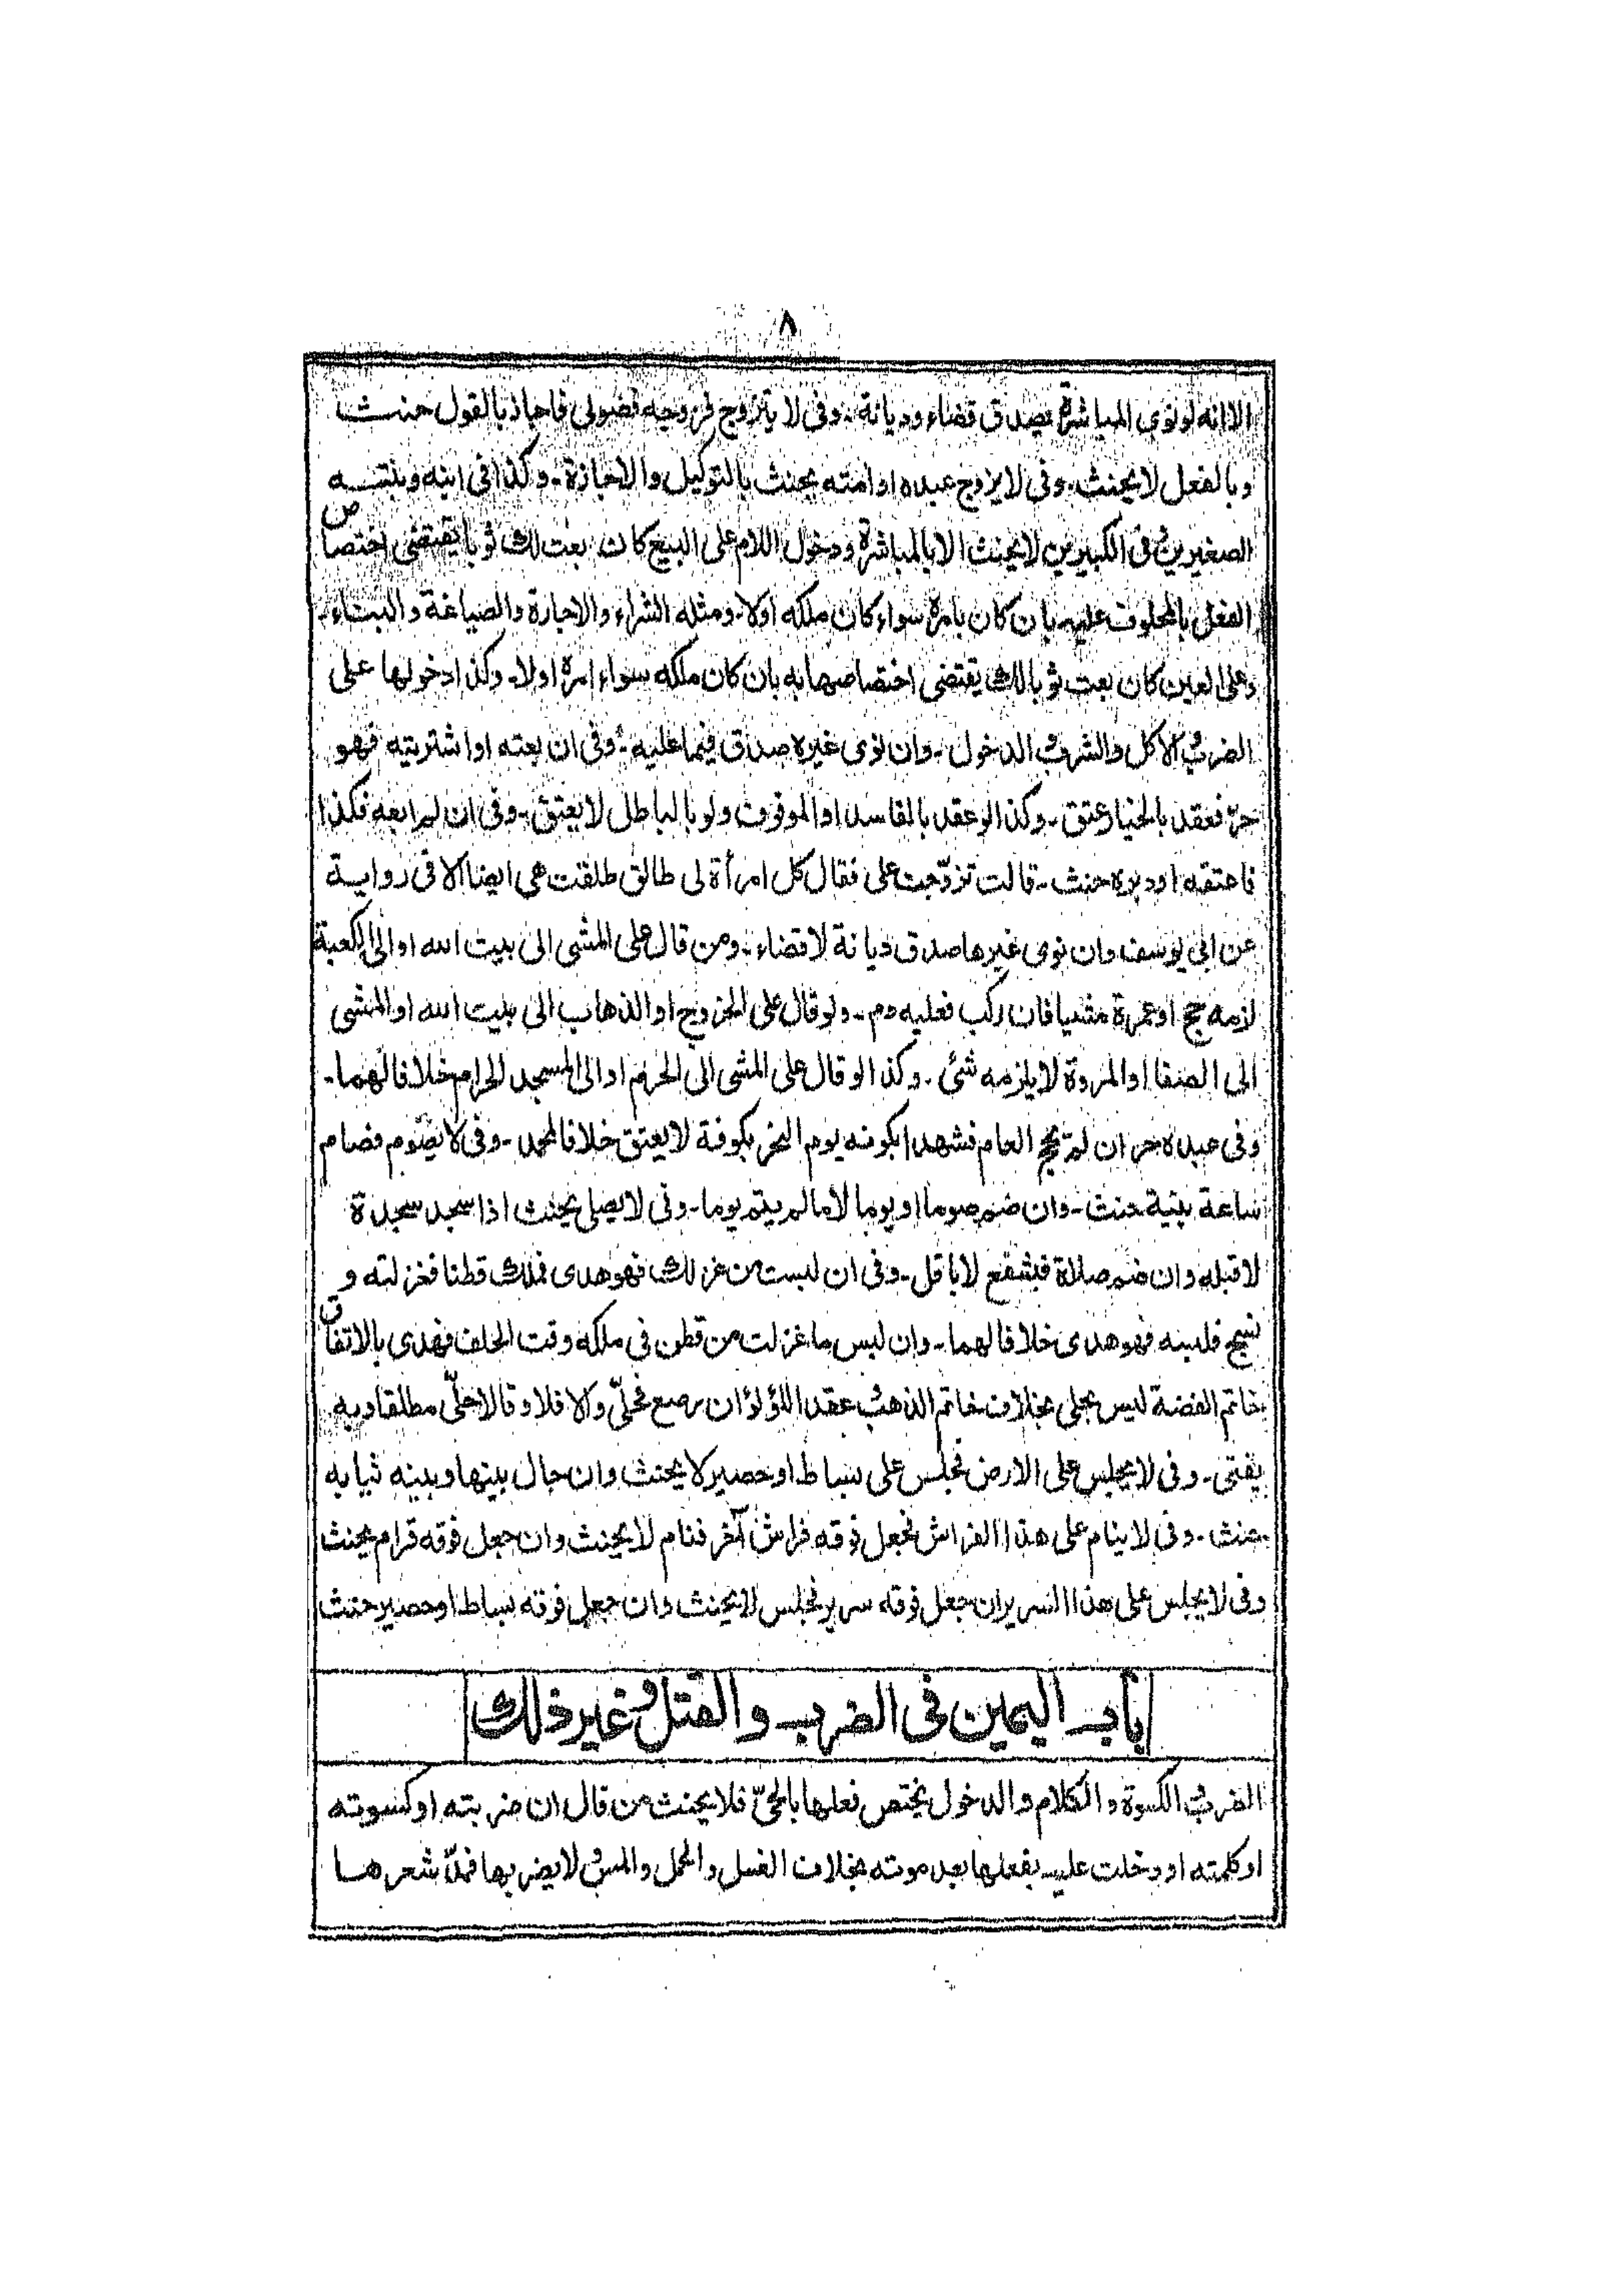 ٨
الا انه لو نوى المباشرة يصدق قضاء وديانة ـ وفى لا يتزوج فزوجه فضولى فاجاز بالقول حنث
وبالفعل لا يحنث ـ وفى لا يزوج عبده او امته يحنث بالتوكيل والاجازة ـ وكذا فى ابنه وبنتـــه
الصغيرين وفى الكبيرين لا يحنث الا بالمباشرة ودخول اللام على البيع كان بعت لك ثوبا يقتضى اختصاص
الفعل بالمحلوف عليه بان كان بامره سواء كان ملكه اولا ـ ومثله الشراء والاجارة والصياغة والبناء ـ
وعلى العين كان بعت ثوبا لك يقتضى اختصاصها به بان كان ملكه سواء امره اولا ـ وكذا دخولها على
الضرب والاكل والشرب والدخول ـ وان نوى غيره صدق فيما عليه ـ وفى ان بعته او اشتريته فهو
حرّ فعقد بالخيار عتق ـ وكذا لو عقد بالفاسد او الموقوف ولو بالباطل لا يعتق ـ وفى ان لم ابعه فكذا
فاعتقه او دبره حنث ـ قالت تزوّجت على فقال كل امرأة لى طالق طلقت هى ايضا الا فى رواية
عن ابى يوسف وان نوى غيرها صدق ديانة لا قضاء ـ ومن قال على المشى الى بيت الله او الى الكعبة
لزمه حج او عمرة مشيا فان ركب فعليه دم ـ ولو قال على الخروج او الذهاب الى بيت الله او المشى
الى الصفا او المروة لا يلزمه شئ ـ وكذا لو قال على المشى الى الحرم او الى المسجد الحرام خلافا لهما ـ
وفى عبده حر ان لم يحج العام فشهدا بكونه يوم النحر بكوفة لا يعتق خلافا لمحمد ـ وفى لا يصوم فصام
ساعة بنية حنث ـ وان ضم صوما او يوما لا ما لم يتم يوما ـ وفى لا يصلى يحنث اذا سجد سجدة
لا قبله وان ضم صلاة فبشفع لا باقل ـ وفى ان لبست من غزلك فهو هدى فملك قطنا فغزلته و
نسج فلبسه فهو هدى خلافا لهما ـ وان لبس ما غزلت من قطن فى ملكه وقت الحلف فهدى بالاتفاق
خاتم الفضة ليس بحلى بخلاف خاتم الذهب وعقد اللؤلؤ ان رصع فحلىّ والا فلا وقالا حلىّ مطلقا وبه
يفتى ـ وفى لا يجلس على الارض فجلس على بساط او حصير لا يحنث وان حال بينها وبينه ثيابه
حنث ـ وفى لا ينام على هذا الفراش فجعل فوقه فراش آخر فنام لا يحنث وان جعل فوقه قرام يحنث
وفى لا يجلس على هذا السرير ان جعل فوقه سرير فجلس لا يحنث وان جعل فوقه بساط او حصير حنث
باب اليمين فى الضرب والقتل وغير ذلك
الضرب والكسوة والكلام والدخول يختص فعلها بالحىّ فلا يحنث من قال ان ضربته او كسوبته
او كلمته او دخلت عليه بفعلها بعد موته بخلاف الغسل والحمل والمس وفى لا يضربها فمدّ شعرها